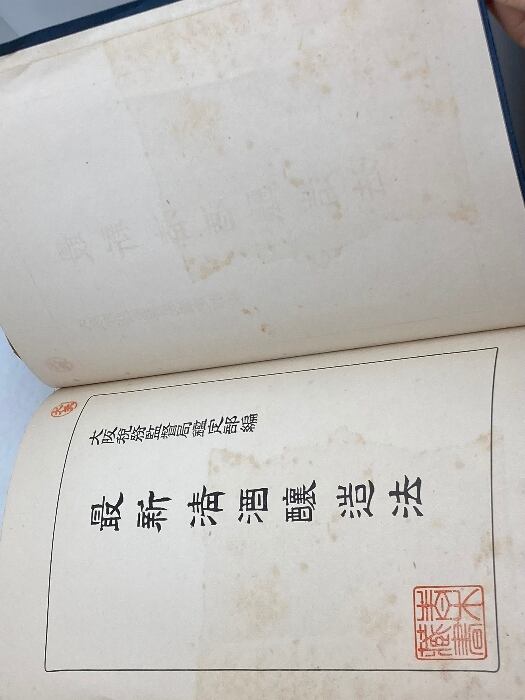 大阪税務監督局鑑定部編
最新清酒醸造法